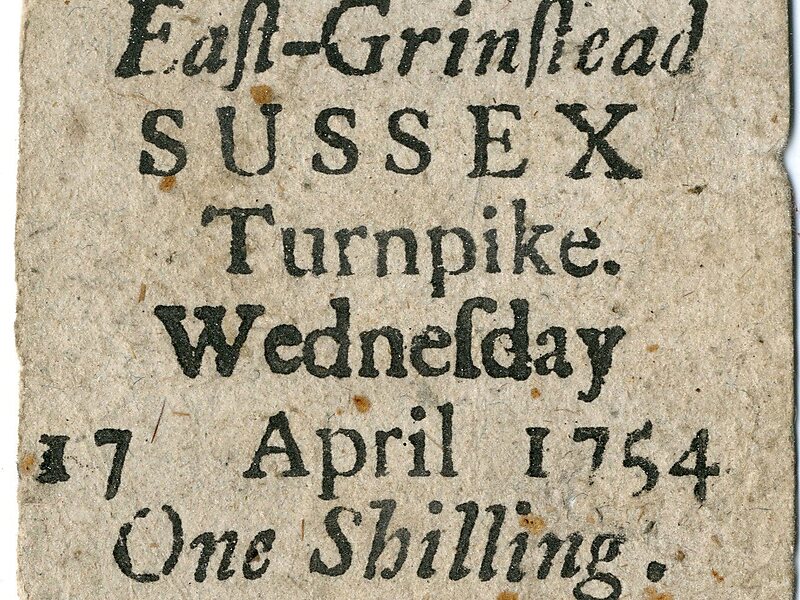 Eaſt-Grinſtead
SUSSEX
Turnpike.
Wedneſday
17 April 1754
One Shilling.